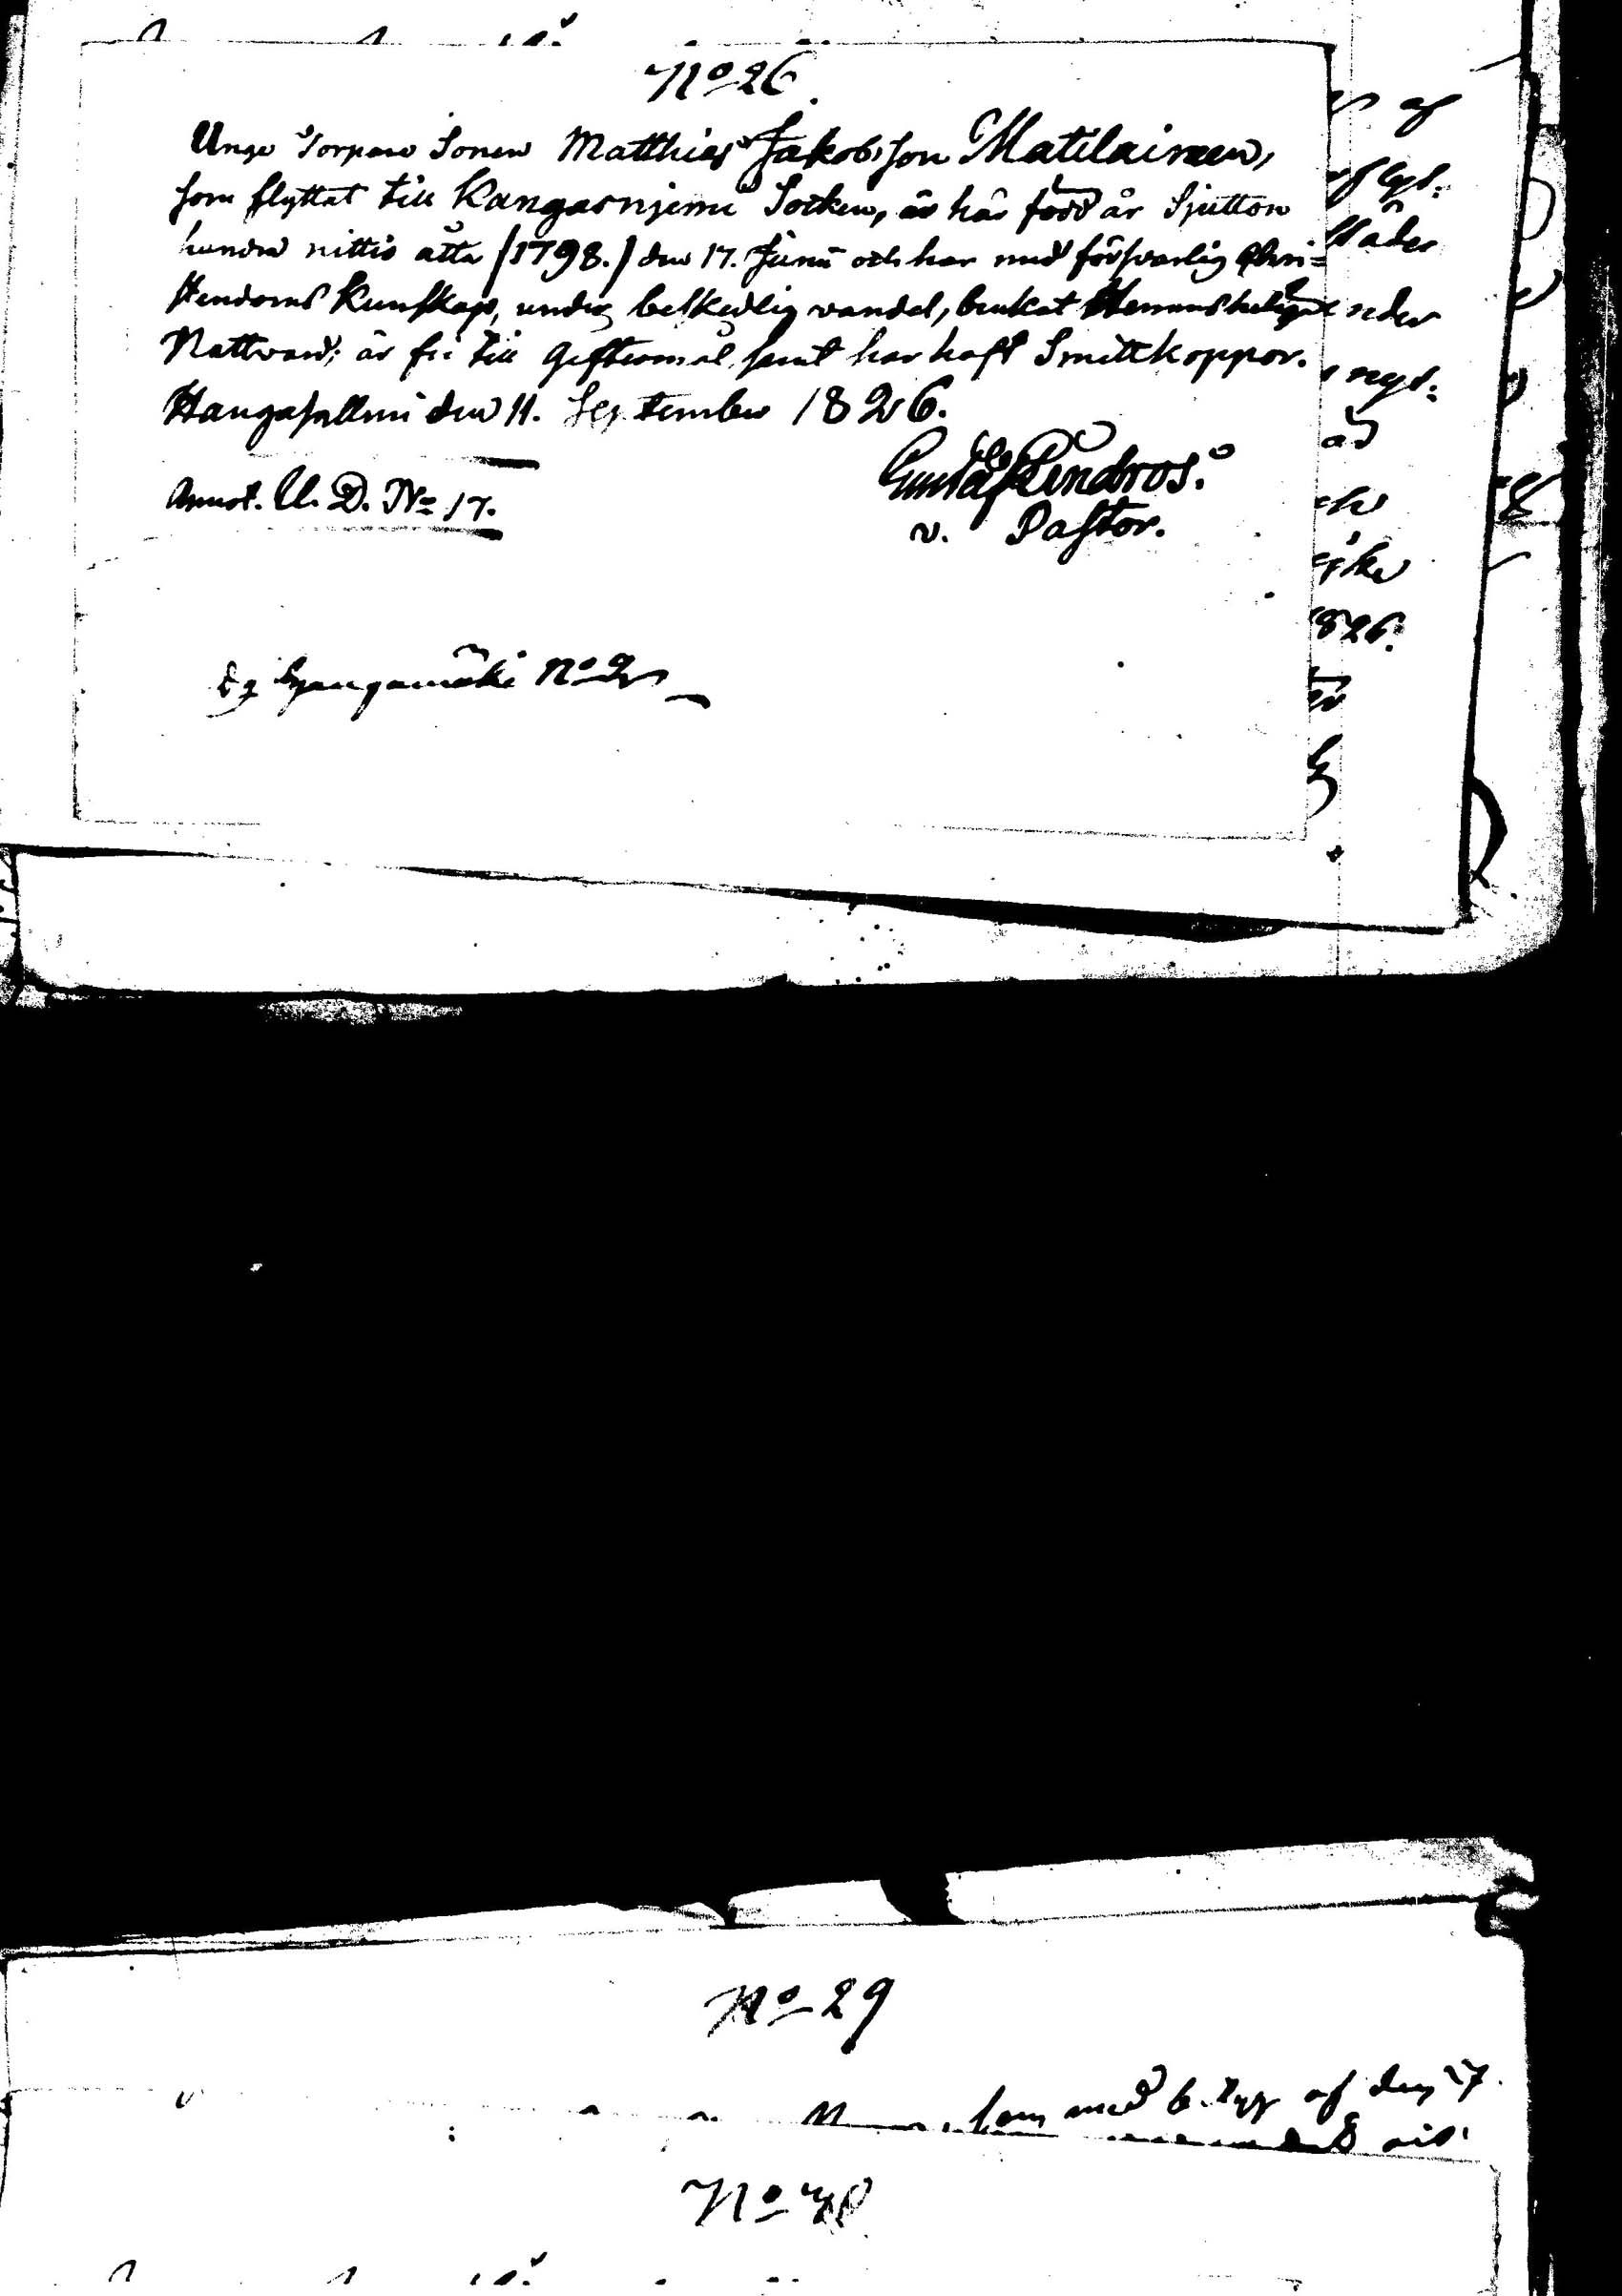 No 26.
Unge Torpare Sonen Matthias Jakobsson Matilainen,
som flyttat till Kangasnjemi Socken, är här född år Sjutton
hundra nittio åtta /1798./ den 17. Junii och har med försvarlig Chri-
stendoms Kunskap, under beskedlig vandel, brukat Herrans heliga
Nattvard; är fri till Giftermål samt har haft Smittkoppor.
Haugasallmi den 11. September 1826.
Gustaf Lindros.
v. Pastor.
Annot. U. D. No 17.
No 2
af
ades
nes
1826.
No 29
som med af den 17
No